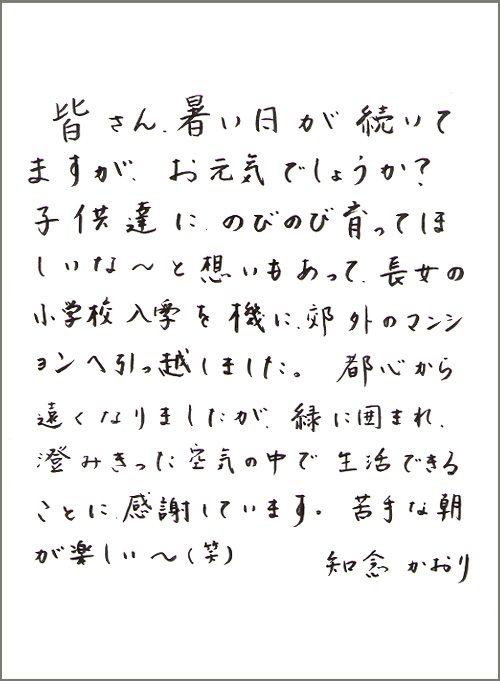 皆さん、暑い日が続いて
ますが、お元気でしょうか?
子供達に、のびのび育ってほ
しいな〜と想いもあって、長女の
小学校入学を機に、郊外のマンシ
ョンへ引っ越しました。都心から
遠くなりましたが、緑に囲まれ、
澄みきった空気の中で生活できる
ことに、感謝しています。苦手な朝
が楽しい〜(笑)
知念 かおり